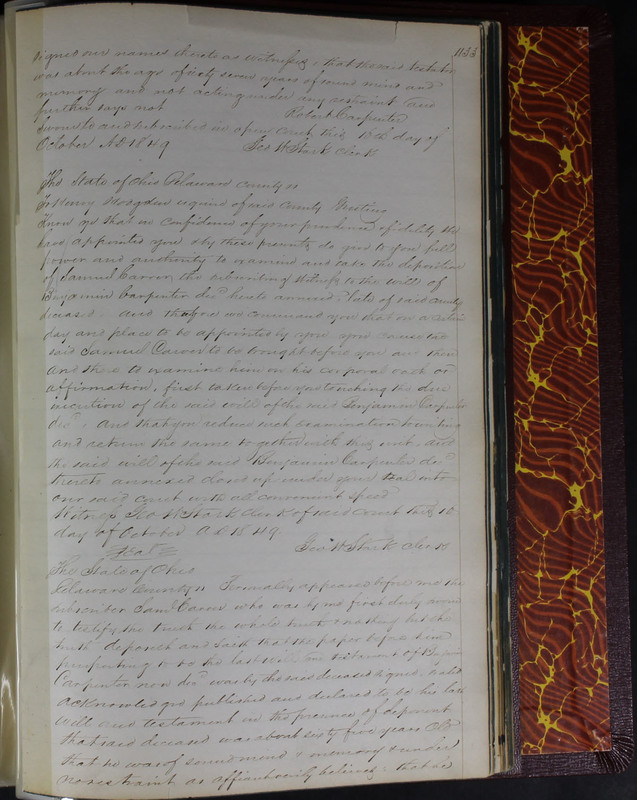 1133
signed our names thereto as witnesses, that the said testator
was about the age of sixty seven years of sound mind and
memory and not acting under any restraint and
further says not Robert Carpenter
Sworn to and subscribed in open court this 10th day of
October AD 1849 Geo W Stark Clerk
The State of Ohio Delaware County ss
To Henry Hodgden esquire of said County Greeting
Know ye that in confidence of your prudence & fidelity We
have appointed you & by these presents do give to you full
power and authority to examine and take the deposition
of Samuel Carver, the subscribing Witness to the will of
Benjamin Carpenter decd hereto annexed late of said County
deceased. And therefore we command you that on a certain
day and place to be appointed by you you cause the
said Samuel Carver to be brought before you and then
and there to examine him on his corporal oath or
affirmation, first taken before you touching the due
execution of the said will of the said Benjamin Carpenter
decd. And that you reduce such examination to writing
and return the same together with this writ and
the said will of the said Benjamin Carpenter decd
thereto annexed closed up under your seal into
our said Court with all convenient speed
Witness Geo W Stark Clerk of said Court this 10
day of October AD 1849.
Seal Geo W Stark Clerk
The State of Ohio
Delaware County ss Personally appeared before me the
subscriber Saml Carver who was by me first duly sworn
to testify the truth the whole truth & nothing but the
truth deposeth and saith that the paper before him
purporting to be the last will and testament of
Carpenter now decd was by the said deceased signed, sealed
acknowledged published and declared to be his last
will and testament in the presence of deponent
that said deceased was about sixty five years old
that he was of sound mind & memory & under
no restraint as affiant verily believes; that he